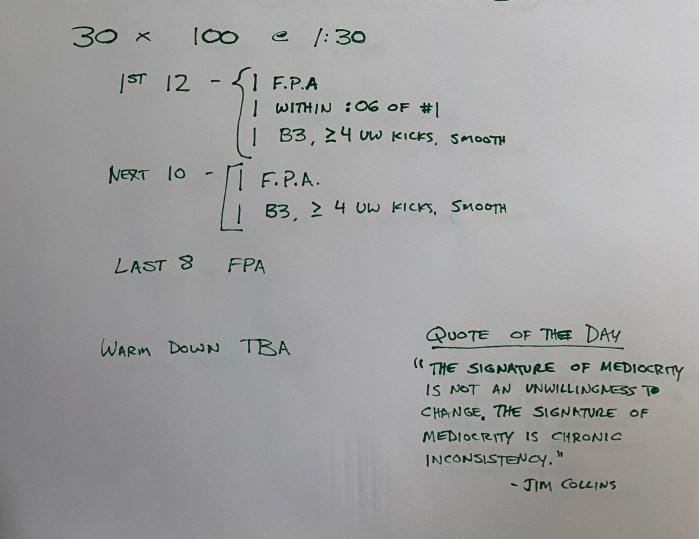 30 x 100 @ 1:30
1ST 12 - { 1 F.P.A
1 WITHIN :06 OF #1
1 B3, ≥4 UW KICKS, SMOOTH
NEXT 10 - [ 1 F.P.A.
1 B3, ≥ 4 UW KICKS, SMOOTH
LAST 8 FPA
WARM DOWN TBA
QUOTE OF THE DAY
"THE SIGNATURE OF MEDIOCRITY
IS NOT AN UNWILLINGNESS TO
CHANGE. THE SIGNATURE OF
MEDIOCRITY IS CHRONIC
INCONSISTENCY."
- JIM COLLINS